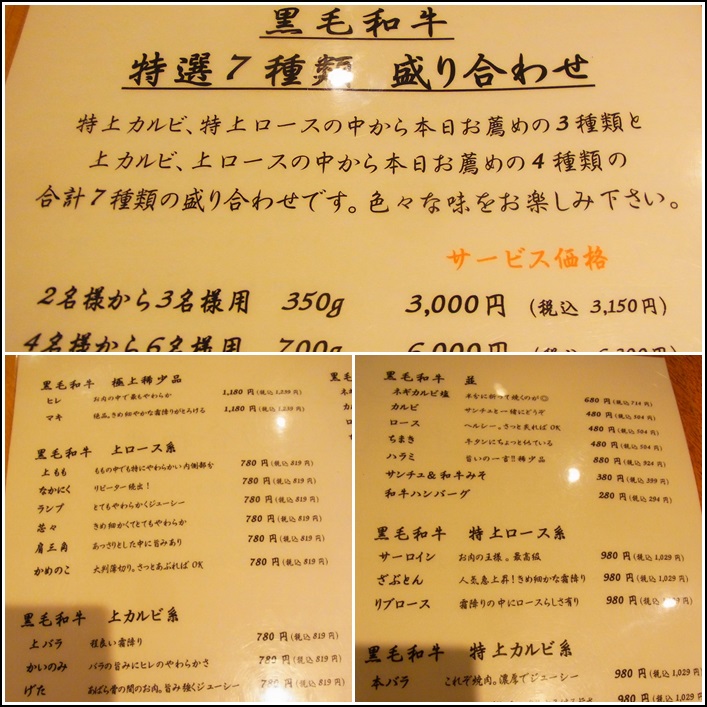 黒毛和牛
特選7種類 盛り合わせ
特上カルビ、特上ロースの中から本日お薦めの3種類と
上カルビ、上ロースの中から本日お薦めの4種類の
合計7種類の盛り合わせです。色々な味をお楽しみ下さい。
サービス価格
2名様から3名様用 350g 3,000円 (税込 3,150円)
4名様から6名様用 700g 6,000円
黒毛和牛 極上稀少品
ヒレ お肉の中で最もやわらか 1,180円(税込1,239円)
マキ 絶品。きめ細やかな霜降りがとろける 1,180円(税込1,239円)
黒毛和牛 上ロース系
上もも ももの中でも特にやわらかい内側部分 780円(税込819円)
なかにく リピーター続出! 780円(税込819円)
ランプ とてもやわらかくジューシー 780円(税込819円)
芯々 きめ細かくてとてもやわらか 780円(税込819円)
肩三角 あっさりとした中に旨みあり 780円(税込819円)
かめのこ 大判薄切り。さっとあぶればOK 780円(税込819円)
黒毛和牛 上カルビ系
上バラ 程良い霜降り 780円(税込819円)
かいのみ バラの旨みにヒレのやわらかさ 780円(税込819円)
げた あばら骨の間のお肉。旨み強くジューシー 780円(税込819円)
黒毛和牛 並
ネギカルビ塩 ネギを折って焼くのが◎ 680円(税込714円)
カルビ サンチュと一緒にどうぞ 480円(税込504円)
ロース ヘルシー。さっと炙ればOK 480円(税込504円)
ちまき 牛タンにちょっと似ている 480円(税込504円)
ハラミ 旨いの一言!!稀少品 880円(税込924円)
サンチュ&和牛みそ 380円(税込399円)
和牛ハンバーグ 280円(税込294円)
黒毛和牛 特上ロース系
サーロイン お肉の王様。最高級 980円(税込1,029円)
ざぶとん 人気急上昇!きめ細かな霜降り 980円(税込1,029円)
リブロース 霜降りの中にロースらしさ有り 980円(税込1,029円)
黒毛和牛 特上カルビ系
本バラ これぞ焼肉。濃厚でジューシー 980円(税込1,029円)
980円(税込1,029円)